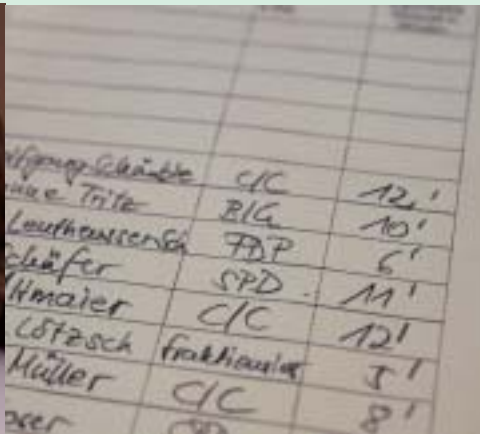 Wolfgang Schäuble C/C 12'
Tritz B/G 10'
Leutheusser-Sch FDP 6'
Schäfer SPD 11'
ltmaier C/C 12'
Lötzsch fraktionslos 5'
Müller C/C 8'
oser